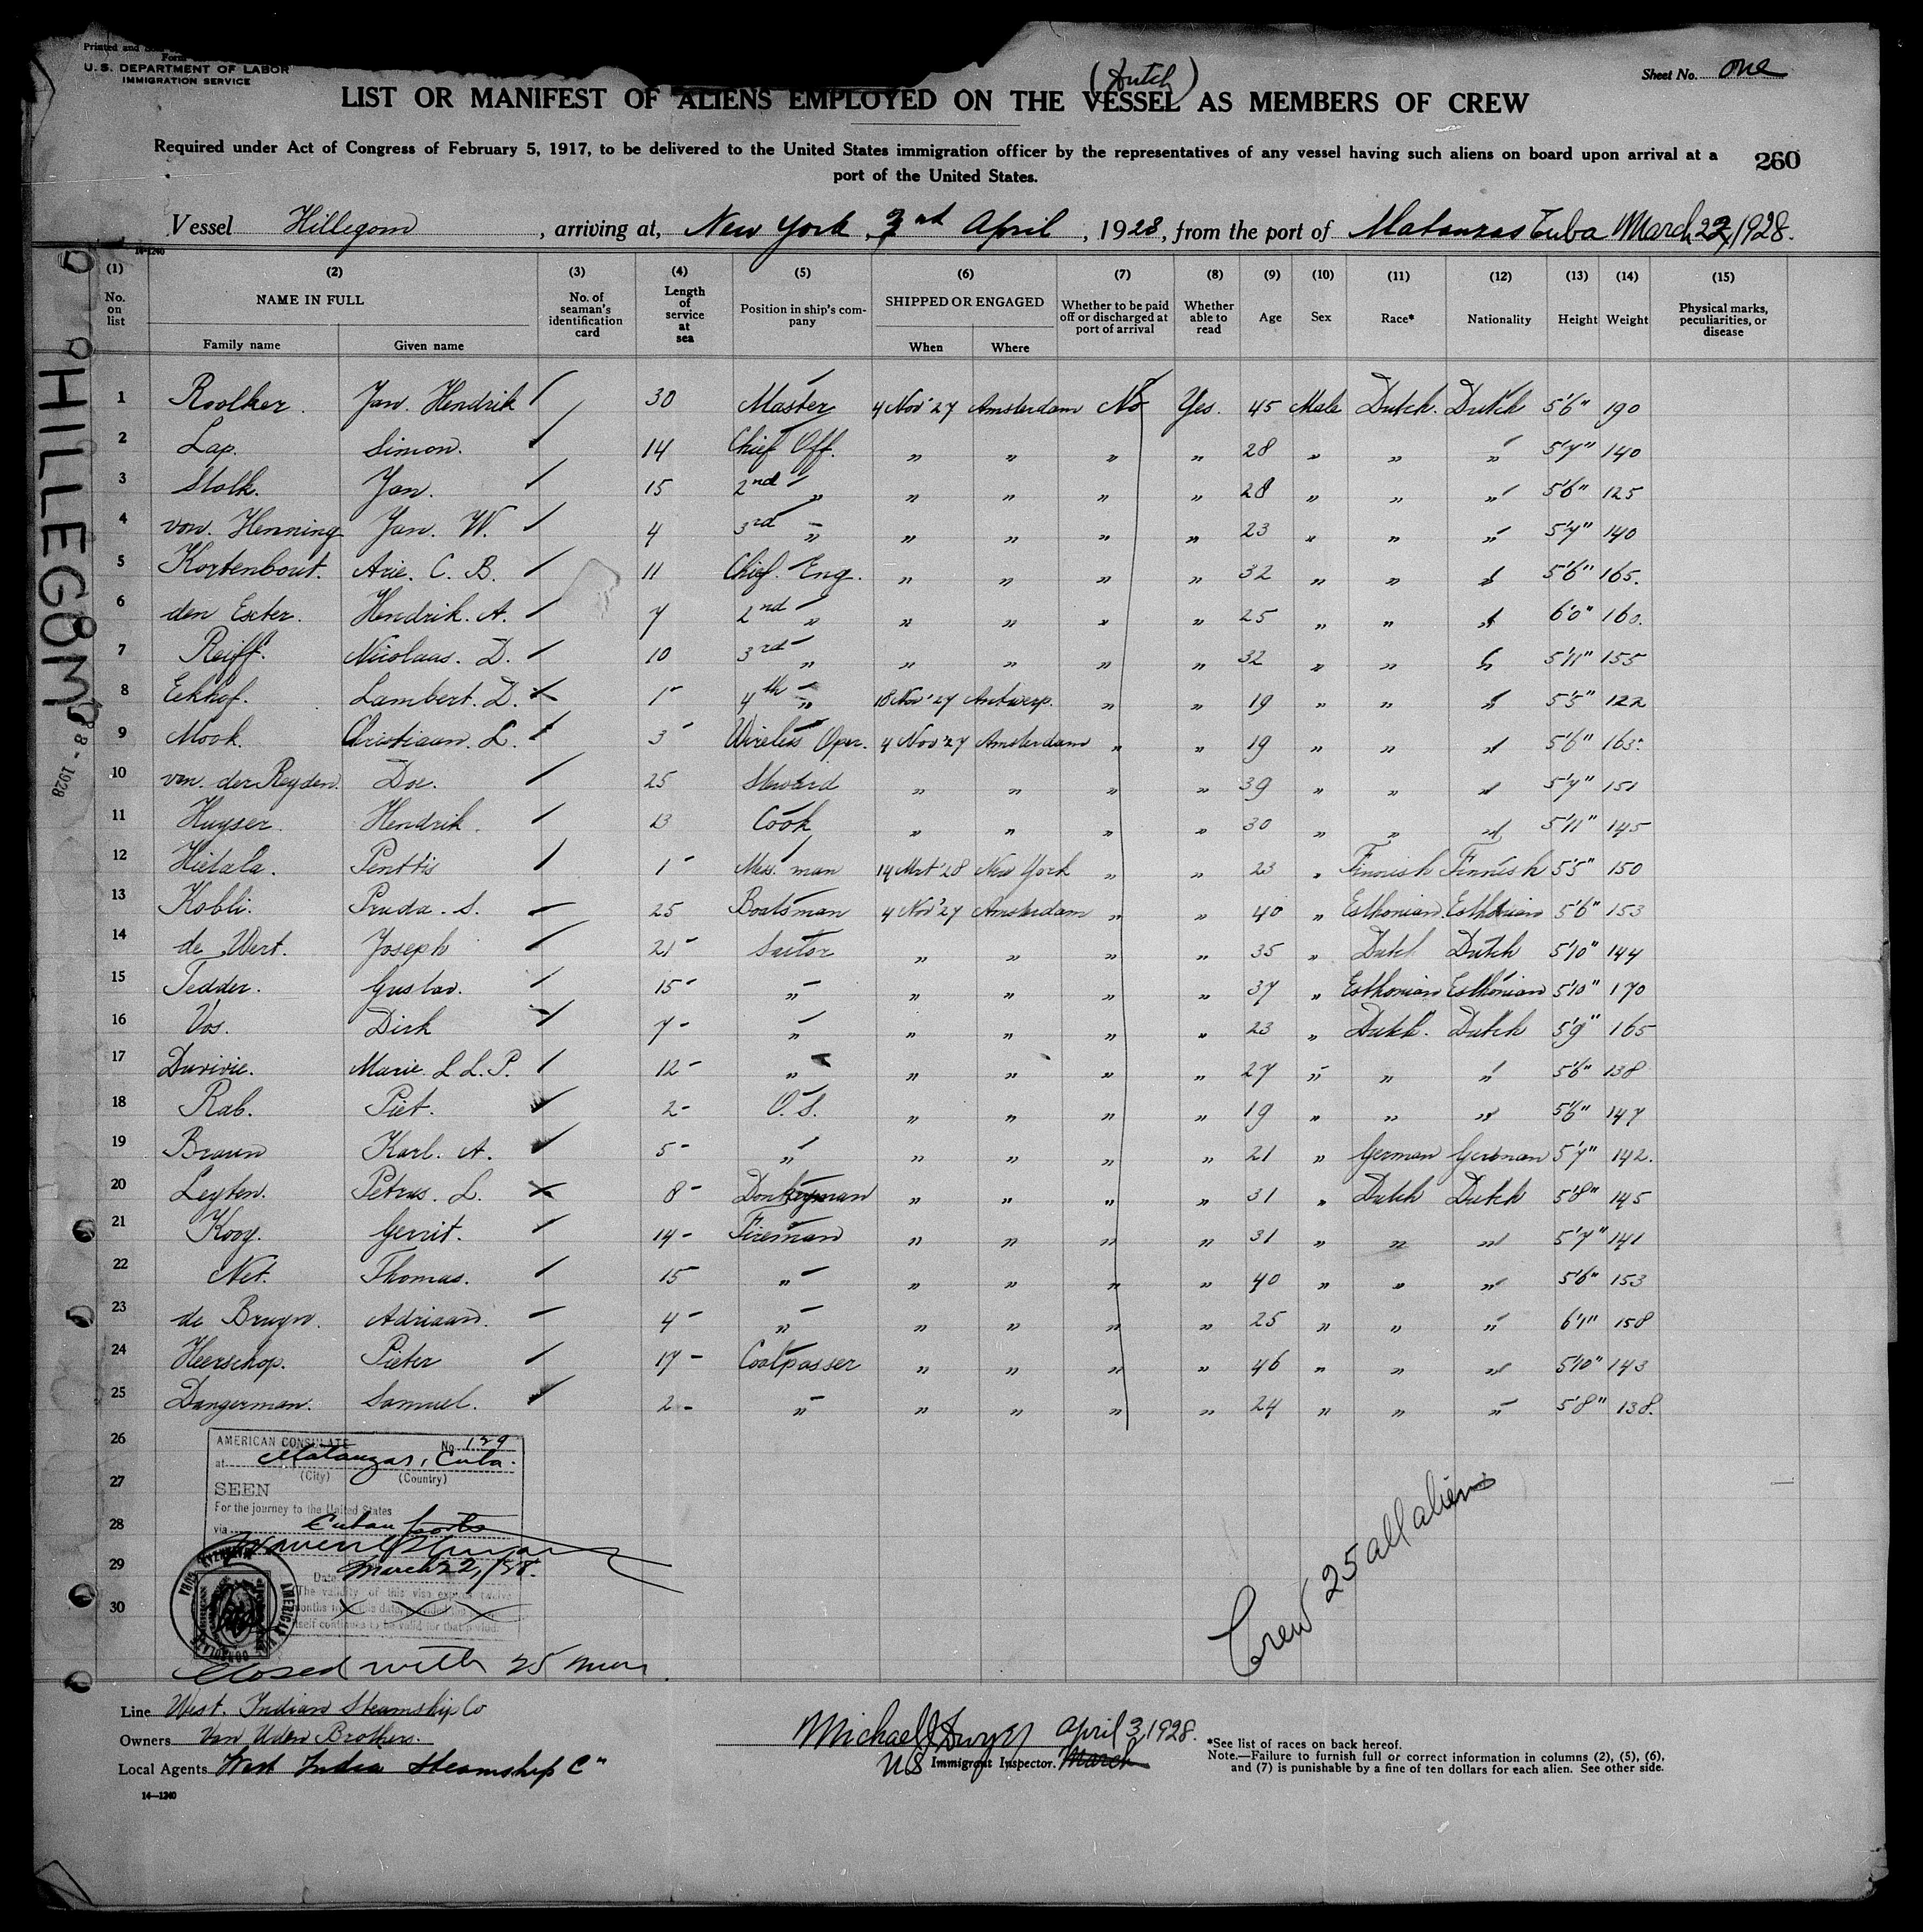 Printed and
Form
U. S. DEPARTMENT OF LABOR
IMMIGRATION SERVICE
Sheet No. one
(Dutch)
LIST OR MANIFEST OF ALIENS EMPLOYED ON THE VESSEL AS MEMBERS OF CREW
Required under Act of Congress of February 5, 1917, to be delivered to the United States immigration officer by the representatives of any vessel having such aliens on board upon arrival at a
port of the United States.
260
Vessel Hillegom, arriving at, New York, 3rd April, 1928, from the port of Matanzas Cuba March 22, 1928.
14-1240
(1) (2) (3) (4) (5) (6) (7) (8) (9) (10) (11) (12) (13) (14) (15)
No. on list NAME IN FULL Family name Given name No. of seaman's identification card Length of service at sea Position in ship's company SHIPPED OR ENGAGED When Where Whether to be paid off or discharged at port of arrival Whether able to read Age Sex Race* Nationality Height Weight Physical marks, peculiarities, or disease
1 Roolker. Jan. Hendrik 30 Master 4 Nov' 27 Amsterdam No Yes. 45 Male Dutch. Dutch 5'6" 190
2 Lap. Simon. 14 Chief Off. „ „ „ „ 28 „ „ „ 5'7" 140
3 Stolk. Jan. 15 2nd „ „ „ „ „ 28 „ „ „ 5'6" 125
4 von. Henning Jan. W. 4 3rd „ „ „ „ „ 23 „ „ „ 5'7" 140
5 Kortenbout. Arie. C. B. 11 Chief. Eng. „ „ „ „ 32 „ „ „ 5'6" 165.
6 den Exter. Hendrik. A. 7 2nd „ „ „ „ „ 25 „ „ „ 6'0" 160.
7 Reiff. Nicolaas. D. 10 3rd „ „ „ „ „ 32 „ „ „ 5'11" 155
8 Eekhof. Lambert. D. 1 4th „ 18 Nov' 27 Antwerp. „ „ 19 „ „ „ 5'5" 122
9 Mook. Christiaan. L. 3 Wireless Oper. 4 Nov' 27 Amsterdam „ „ 19 „ „ „ 5'6" 163.
10 van. der Reyden. Doe. 25 Steward „ „ „ „ 39 „ „ „ 5'7" 151
11 Huyser. Hendrik. 13 Cook „ „ „ „ 30 „ „ „ 5'11" 145
12 Hietala. Penttis 1 Mess. man 14 Mrt' 28 New York „ „ 23 „ Finnish Finnish 5'5" 150
13 Kobli. Pruda. S. 25 Boatsman 4 Nov' 27 Amsterdam „ „ 40 „ Esthonian. Esthonian 5'6" 153
14 de Wert. Joseph 21 Sailor „ „ „ „ 35 „ Dutch Dutch 5'10" 144
15 Tedder. Gustav. 15 „ „ „ „ „ 37 „ Esthonian Esthonian 5'10" 170
16 Vos. Dirk 7 „ „ „ „ „ 23 „ Dutch. Dutch 5'9" 165
17 Duvivie. Marie. L. L. P. 12 „ „ „ „ „ 27 „ „ „ 5'6" 138
18 Rab. Piet. 2 O. S. „ „ „ „ 19 „ „ „ 5'6" 147
19 Braun Karl. A. 5 „ „ „ „ „ 21 „ German German 5'7" 142.
20 Leyten. Petrus. L. 8 Donkeyman „ „ „ „ 31 „ Dutch Dutch 5'8" 145
21 Kooy. Gerrit. 14 Fireman „ „ „ „ 31 „ „ „ 5'7" 141
22 Net. Thomas. 15 „ „ „ „ „ 40 „ „ „ 5'6" 153
23 de Bruyn. Adriaan. 4 „ „ „ „ „ 25 „ „ „ 6'1" 158
24 Heerschop. Pieter 17 Coalpasser „ „ „ „ 46 „ „ „ 5'10" 143
25 Dangerman. Samuel. 2 „ „ „ „ „ 24 „ „ „ 5'8" 138.
26
27
28
29
30
HILLEGOM
1928
AMERICAN CONSULATE No. 129
at Matanzas, Cuba.
(City) (Country)
SEEN
For the journey to the United States
via Cuban ports
Date March 22, 1928.
The validity of this visa expires twelve
months from this date, provided the
itself continues to be valid for that period.
Closed with 25 men
Crew 25 all aliens
Line West. Indian Steamship Co
Owners Van Uden Brothers.
Local Agents West India Steamship Co
14—1240
Michael J Dwyer April 3, 1928.
US Immigrant Inspector. March
*See list of races on back hereof.
Note.—Failure to furnish full or correct information in columns (2), (5), (6),
and (7) is punishable by a fine of ten dollars for each alien. See other side.